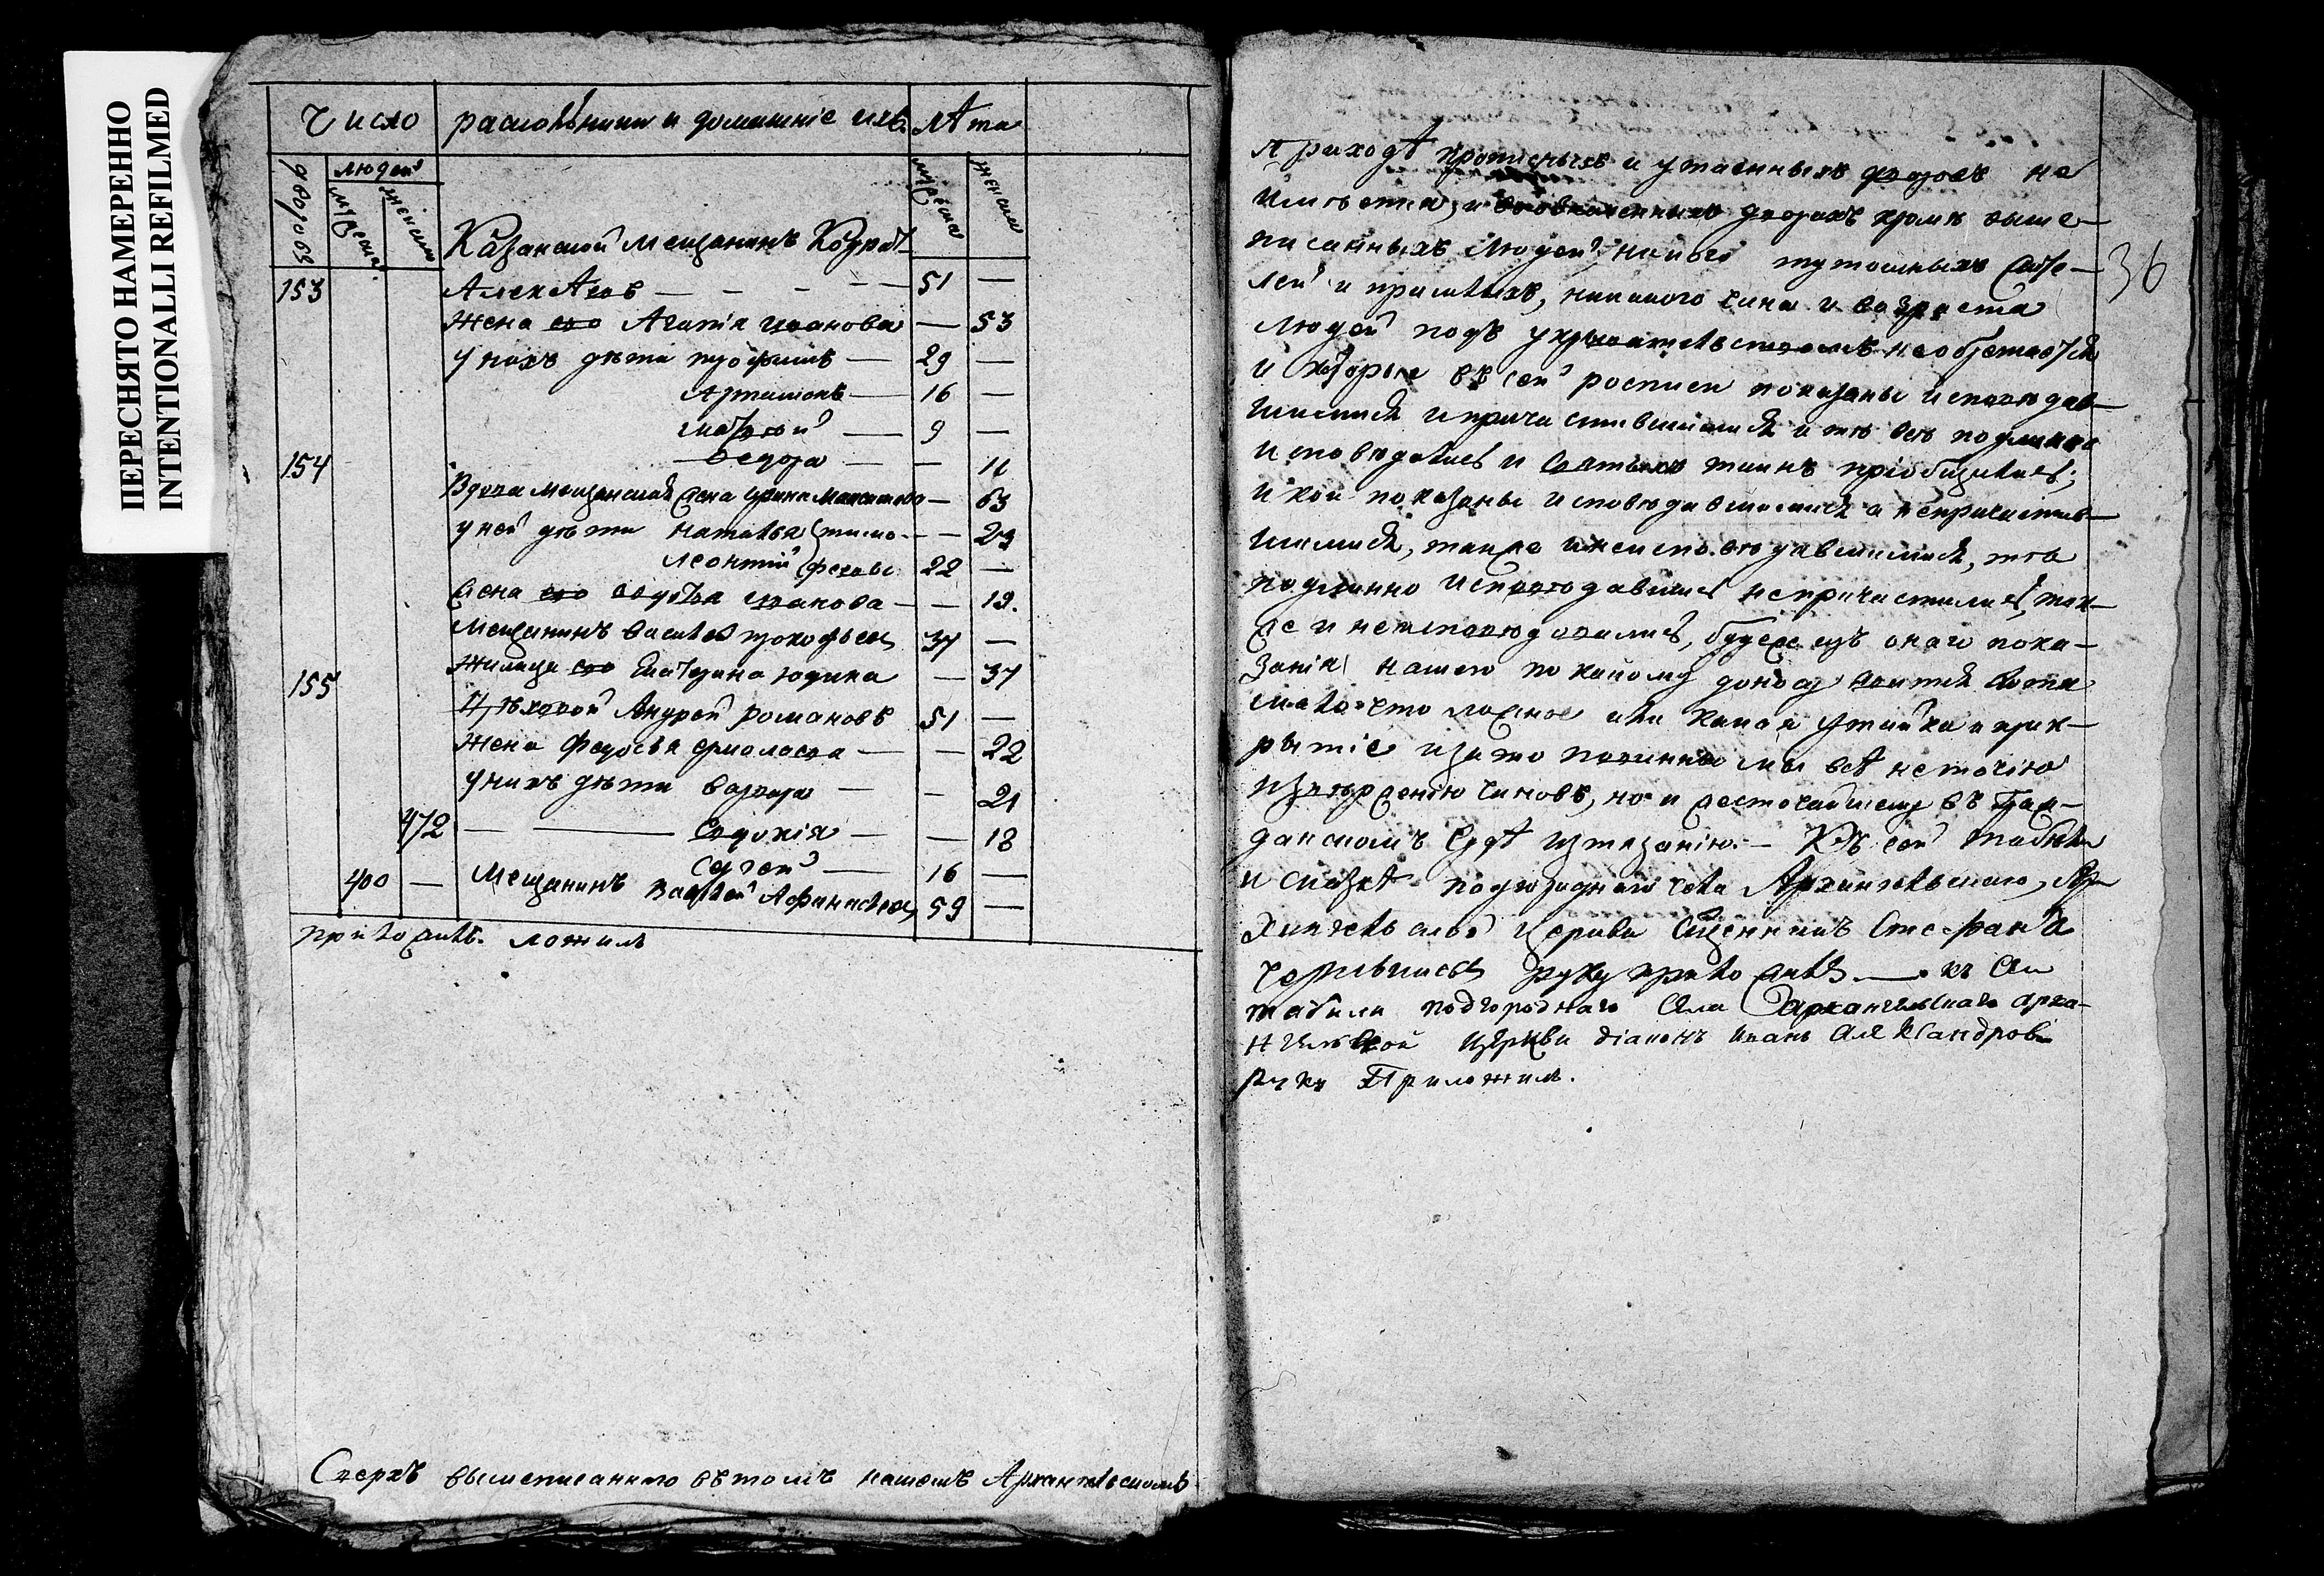 ПЕРЕСНЯТО НАМЕРЕННО
INTENTIONALLI REFILMED
Число раскольники и домашніе ихъ лѣта
дворовъ людей мужеска женска мужеска женска
Казанской мещанинъ Кодрат
153 Алекѣевъ — — — — 51 —
жена ево Агапія иванова — 53
у нихъ дѣти трофимъ — 29 —
Артамонъ — 16 —
матвей — 9 —
Федора — — 11
154 Вдова мещанская жена ирина Максимова — 63
у ней дѣти наталья (тимо- — 29
леонтий (феевы 22 —
жена ево авдотья иванова — — 19.
мещанинъ василей прокофьевъ 37 —
жилица ево Екатерина юдина — 37
155 Цѣховой Андрей романовъ 51 —
жена федосья ермолаева — — 22
у нихъ дѣти варвара — — 21
472 — Евдокія — — 18
Сергей — 16 —
400 — мещанинъ Василей Афанасьевъ 59 —
приложилъ. ложилъ
Сверхъ вышеписанного въ томъ нашемъ Архангельскомъ
36
приходѣ прописныхъ и утаенныхъ дворовъ не
имѣется, и во означенныхъ дворахъ кромѣ выше-
писанныхъ людей никого тутошныхъ жите-
лей и пришлыхъ, никакого чина и возраста
людей подъ укрывательствомъ необретается
и которые въ сей росписи показаны исповѣдав-
шимися и причастившимися и тѣ всѣ подлинно
исповѣдались и святыхъ таинъ приобщились;
и кои показаны исповѣдавшимися а непричастив-
шимися, также и неисповѣдавшимися, тѣ
подлинно исповѣдавшись непричастились, так-
же и неисповѣдовались, буде же изъ онаго пока-
занія нашего по какому доносу явится хотя
мало что ложное или какая утайка и прик-
рытіе и за то повинны мы всѣ неточію
извержению чиновъ, но и жесточайшему въ граж-
данскомъ Судѣ истязанію. — Къ сей табели
и скаскѣ подгороднаго села Архангельскаго, Ар-
хангельской Церкви Сщенникъ Стефанъ
руку приложилъ —. къ сеи
табили подгороднаго Села Архангельскаго арха-
нгильской Цѣркви діаконъ иванъ Александровъ
руку Приложилъ.